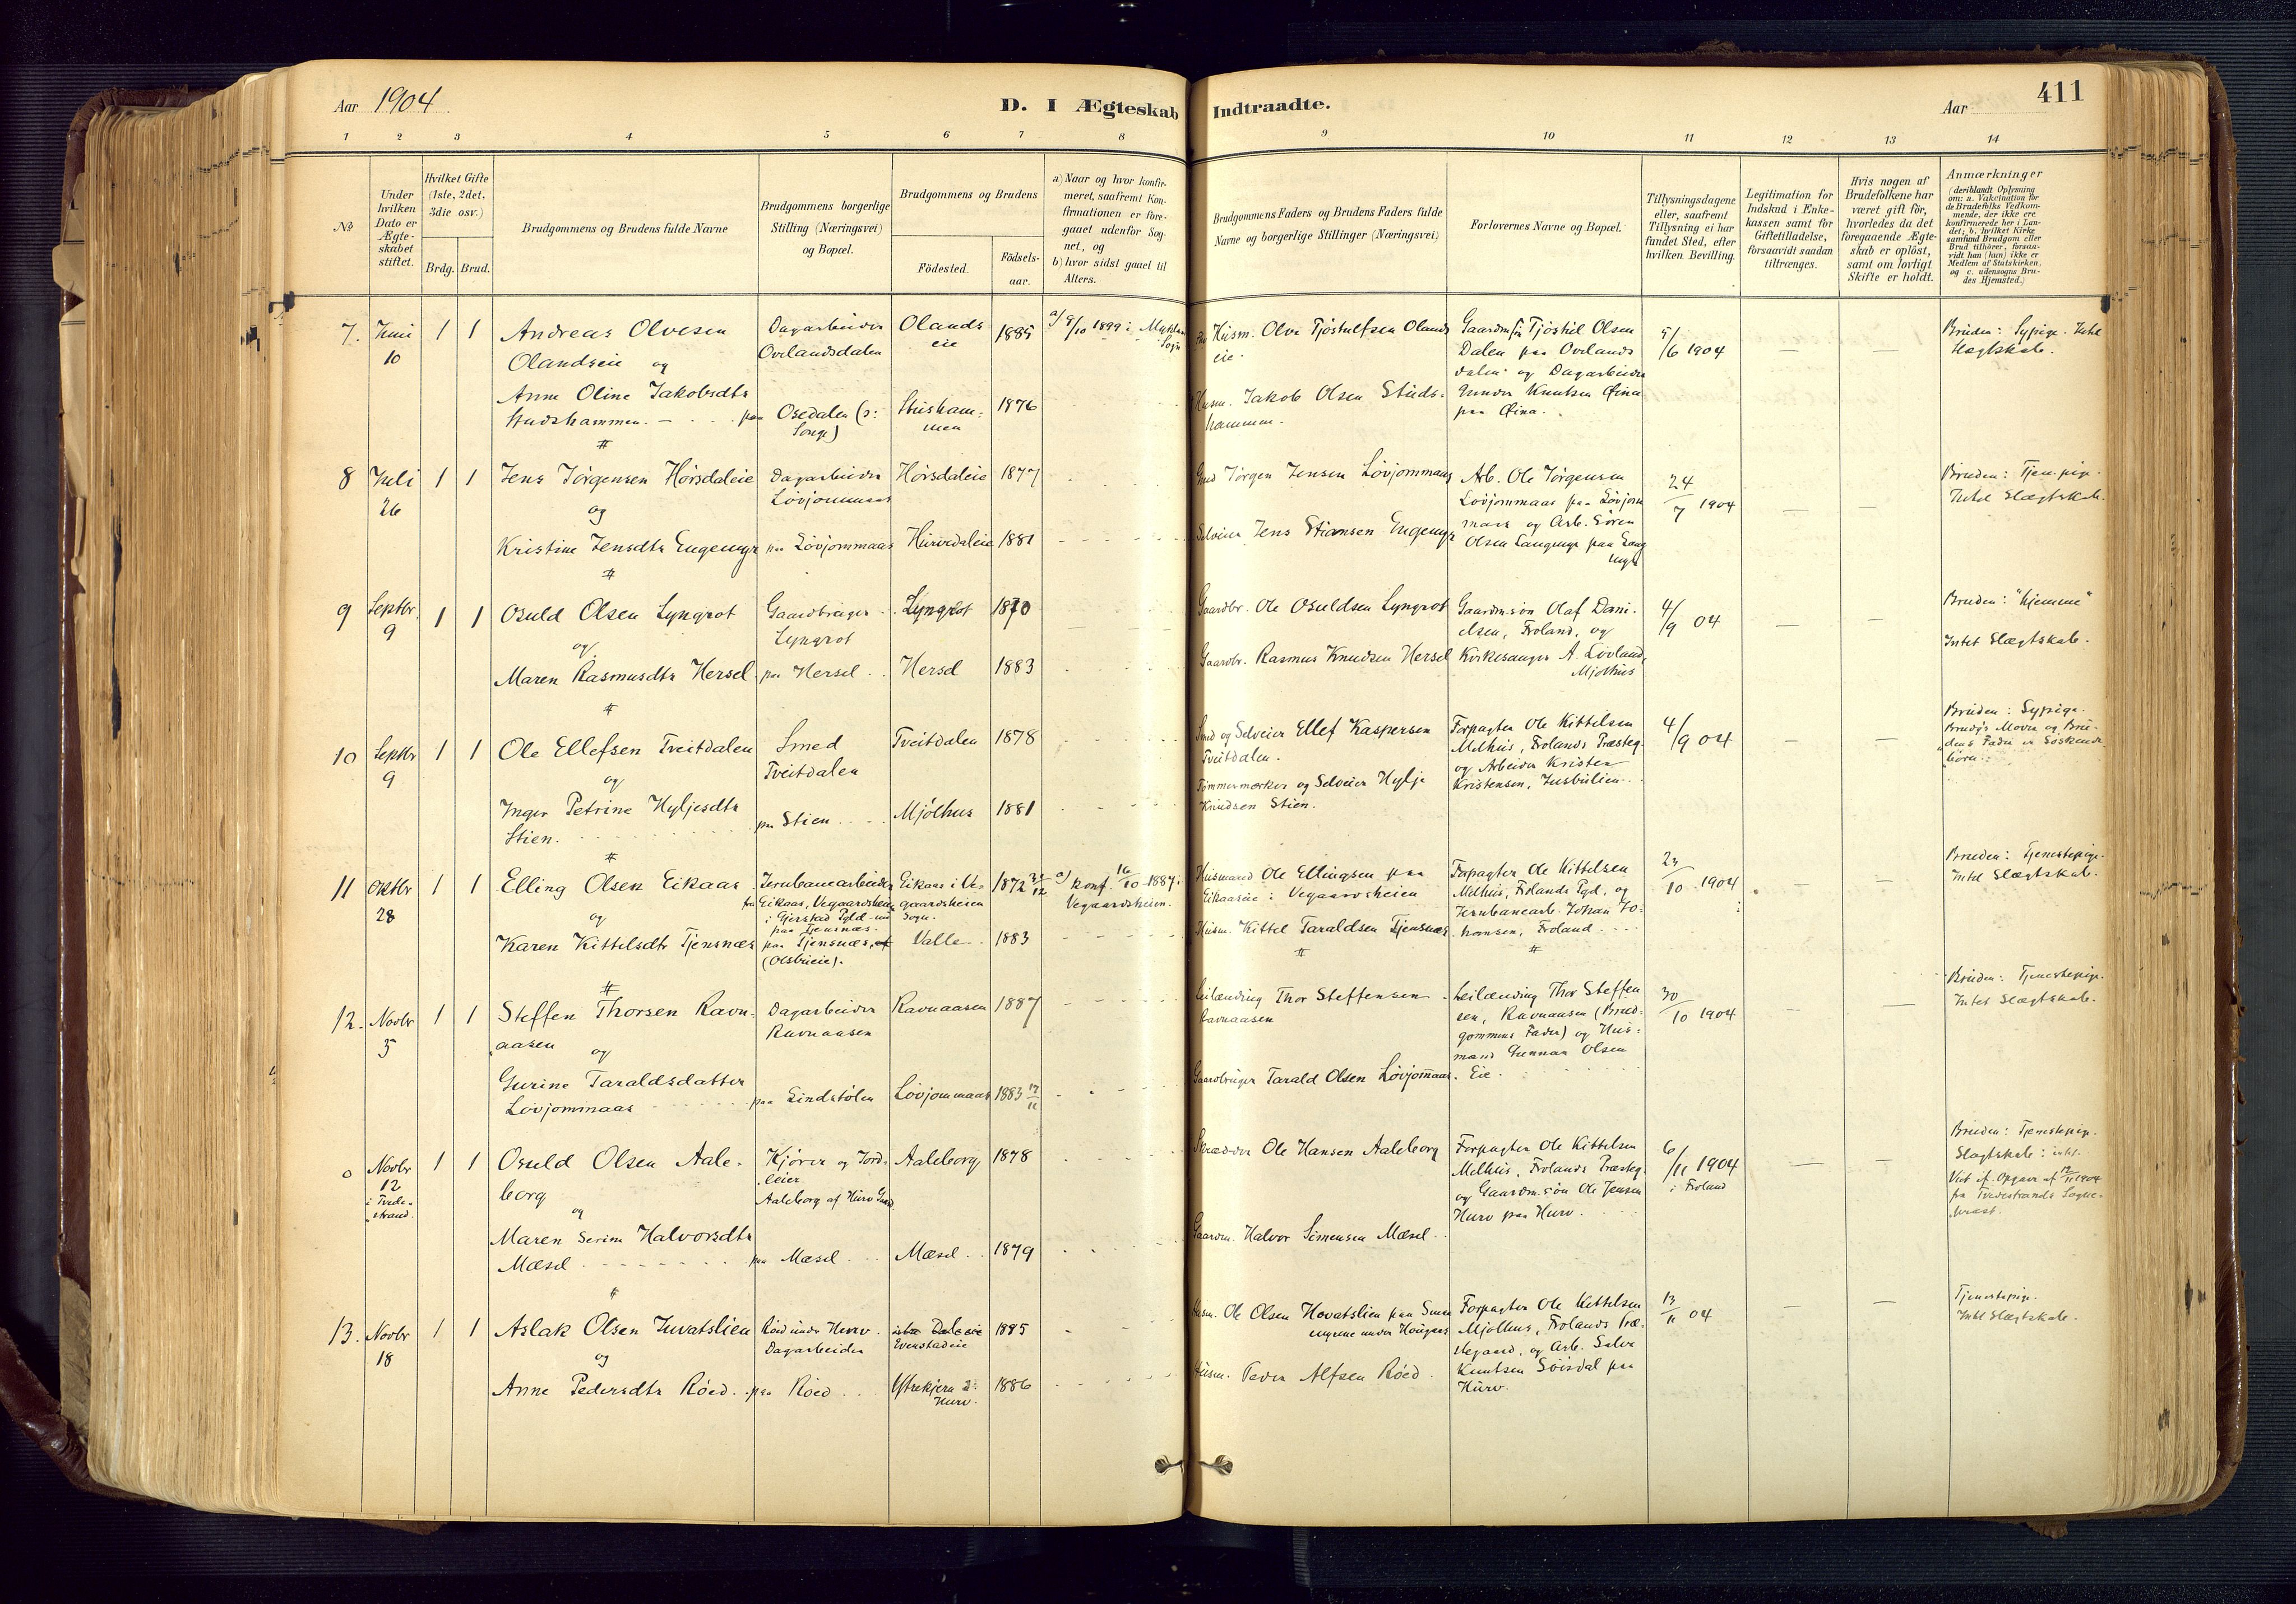 Aar 1904
D. I Ægteskab Indtraadte.
Aar
411
1 2 3 4 5 6 7 8 9 10 11 12 13 14
No
Under hvilken Dato er Ægteskabet stiftet.
Hvilket Gifte (1ste, 2det, 3die osv.)
Brdg. Brud.
Brudgommens og Brudens fulde Navne
Brudgommens borgerlige Stilling (Næringsvei) og Bopæl.
Brudgommens og Brudens
Födested.
Födselsaar.
a) Naar og hvor konfirmeret, saafremt Konfirmationen er foregaaet udenfor Sognet, og
b) hvor sidst gaaet til Alters.
Brudgommens Faders og Brudens Faders fulde Navne og borgerlige Stillinger (Næringsvei)
Forlovernes Navne og Bopæl.
Tillysningsdagene eller, saafremt Tillysning ei har fundet Sted, efter hvilken Bevilling.
Legitimation for Indskud i Enkekassen samt for Giftetilladelse, forsaavidt saadan tiltrænges.
Hvis nogen af Brudefolkene har været gift för, hvorledes da det foregaaende Ægteskab er oplöst, samt om lovligt Skifte er holdt.
Anmærkninger
(deriblandt Oplysning om: a. Vakcination for de Brudefolks Vedkommende, der ikke ere konfirmerede her i Landet; b. hvilket Kirkesamfund Brudgom eller Brud tilhörer, forsaavidt han (hun) ikke er Medlem af Statskirken, og c. udensogns Brudes Hjemsted.)
7. Juni 10 1 1
Andreas Olvesen
Olandseie og
Dagarbeider
Ovelandsdalen
Olands
eie
1885
a/ 9/10 1899 i
Sogn
Husm. Olve Tjöstulfsen Olands
eie.
Gaardmsön Tjöstul Olsen
Dalen paa Ovelands
dalen og Dagarbeider
Gunder Knutsen Öina
paa Öina.
5/6 1904
Bruden: Sypige. Intet
Slægtskab.
Anne Oline Jakobsdtr
Studshammen. paa
Osedalen (o:
Songe)
1876
Husm. Jakob Olsen Studs-
hammen.
8 Juli 26 1 1
Jens Jörgensen Hörsdaleie
og
Dagarbeider
Lövjommaas
Hörsdaleie
1877
Jörgen Jensen Lövjommaas
Arb. Ole Jörgensen
Lövjommaas paa Lövjom
maas og Arb. Sören
Olsen Langmyr paa Lang
myr
24/7 1904
Bruden: Tjen.pige.
Intet Slægtskab.
Kristine Jensdtr Engemyr
paa Lövjommaas
1881
Selveier Jens Stiansen Engemyr
9 Septbr 9 1 1
Osuld Olsen Lyngrot
og
Gaardbruger
Lyngrot
Lyngrot
1870
Gaardbr. Ole Osuldsen Lyngrot
Gaardm.sön Olaf Dani-
elsen, Froland, og
Kirkesanger A. Lövland,
Mjölhus
4/9 04
Bruden: "hjemme"
Intet Slægtskab.
Maren Rasmusdtr Hersel
paa Hersel
Hersel
1883
Gaardbr. Rasmus Knudsen Hersel
10 Septbr 9 1 1
Ole Ellefsen Tveitdalen
og
Smed
Tveitdalen
Tveitdalen
1878
Smed og Selveier Ellef Kaspersen
Tveitdalen.
Forpagter Ole Kittelsen
Melhus, Frolands Præsteg.
og Arbeider Kristen
Kristensen, Jusbulien.
4/9 04
Bruden: Sypige.
Brudg's Moder og Bru-
dens Fader er Söskende-
börn.
Inger Petrine Hyljesdtr
Stien.
paa Stien
Mjölhus
1881
Tömmermærker og Selveier Hylje
Knudsen Stien.
11 Oktbr 28 1 1
Elling Olsen Eikaas
og
Jernbanearbeider
fra Eikaas, Vegaardsheien
i Gjerstad Pgld. nu
paa Tjensnæs
Eikaas i Ve-
gaardsheien
Sogn.
1872 /12
a) Konf. 16/10 1887 i
Vegaardsheien.
Husmand Ole Ellingsen paa
Eikaaseie i Vegaardsheien
Forpagter Ole Kittelsen
Melhus, Frolands Pgd, og
Jernbanearb. Johan Jo-
hansen, Froland
23/10 1904
Bruden: Tjenestepige.
Intet Slægtskab.
Karen Kittelsdtr Tjensnæs
paa Tjensnæs
(Olsbueie).
Valle
1883
Husm. Kittel Taraldsen Tjensnæs
12. Novbr 5 1 1
Steffen Thorsen Ravn-
aasen
og
Dagarbeider
Ravnaasen
Ravnaasen
1887
Leilænding Thor Steffensen
Ravnaasen
Leilænding Thor Steffen
sen, Ravnaasen (Brud-
gommens Fader) og Hus-
mand Gunnar Olsen
Eie.
30/10 1904
Bruden: Tjenestepige.
Intet Slægtskab.
Gurine Taraldsdatter
Lövjommaas
paa Lindstölen
Lövjommaas
1883 /11
Gaardbruger Tarald Olsen Lövjommaas
0 Novbr 12 i Tvede-
strand. 1 1
Osuld Olsen Aale-
borg
og
Kjörer og Jord-
leier
Aaleborg af Hurv
Aaleborg
1878
Skrædder Ole Hansen Aaleborg
Forpagter Ole Kittelsen
Melhus, Frolands Præsteg.
og Gaardm.sön Ole Jensen
Hurv paa Hurv.
6/11 1904
i Froland
Bruden: Tjenestepige.
Slægtskab: intet.
Viet if. Opgave af 12/11 1904
fra Tvedestrands Sogne-
præst.
Maren Serine Halvorsdtr
Mæsel
paa Mæsel
Mæsel
1879
Gaardm. Halvor Simensen Mæsel
13. Novbr 18 1 1
Aslak Olsen Juvatslien
og
Röed under Hurv.
Dagarbeider
Evenstadeie
1885
Husm. Ole Olsen Hovatslien paa
Forpagter Ole Kittelsen
Mjölhus, Frolands Præ-
stegaard, og Arb. Salve
Knutsen Söisdal paa
Hurv.
13/11 04
Tjenestepige.
Intet Slægtskab.
Anne Pedersdtr Röed
paa Röed
Ytrekjern
Hurv.
1886
Husm. Peder Alfsen Röed